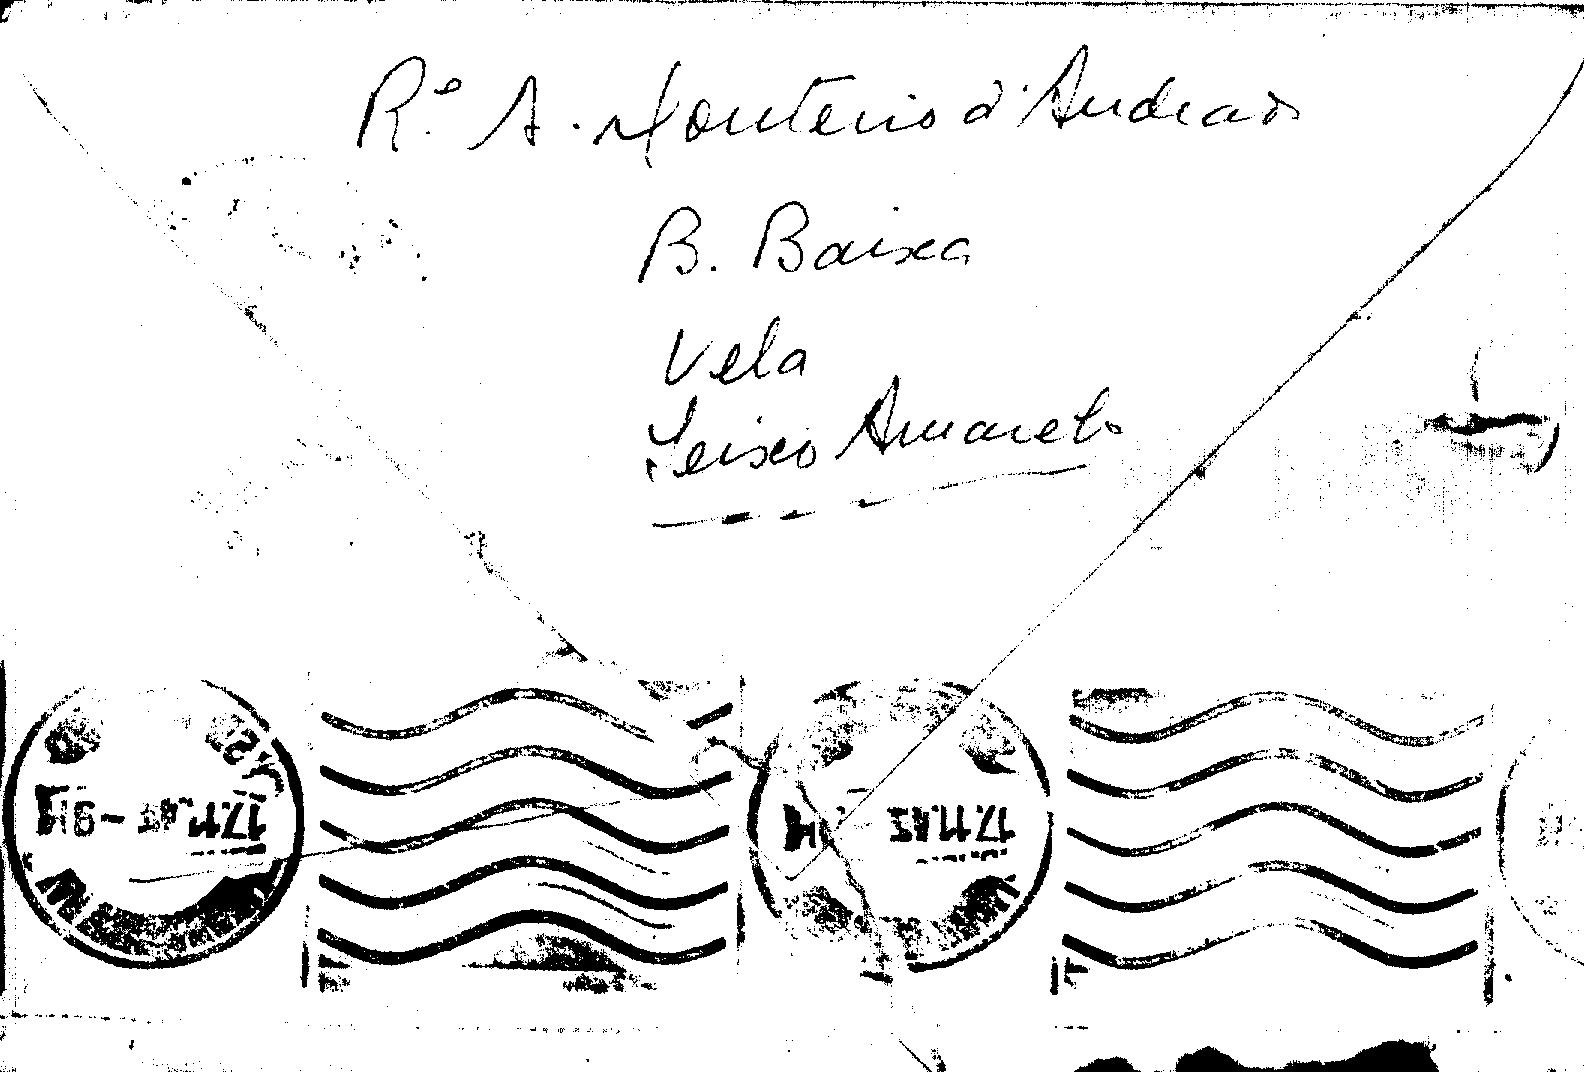 Rº A. Monteiro d'Andrade
B. Baixa
Vela
Seixo Amarelo
17.11.
17.11.